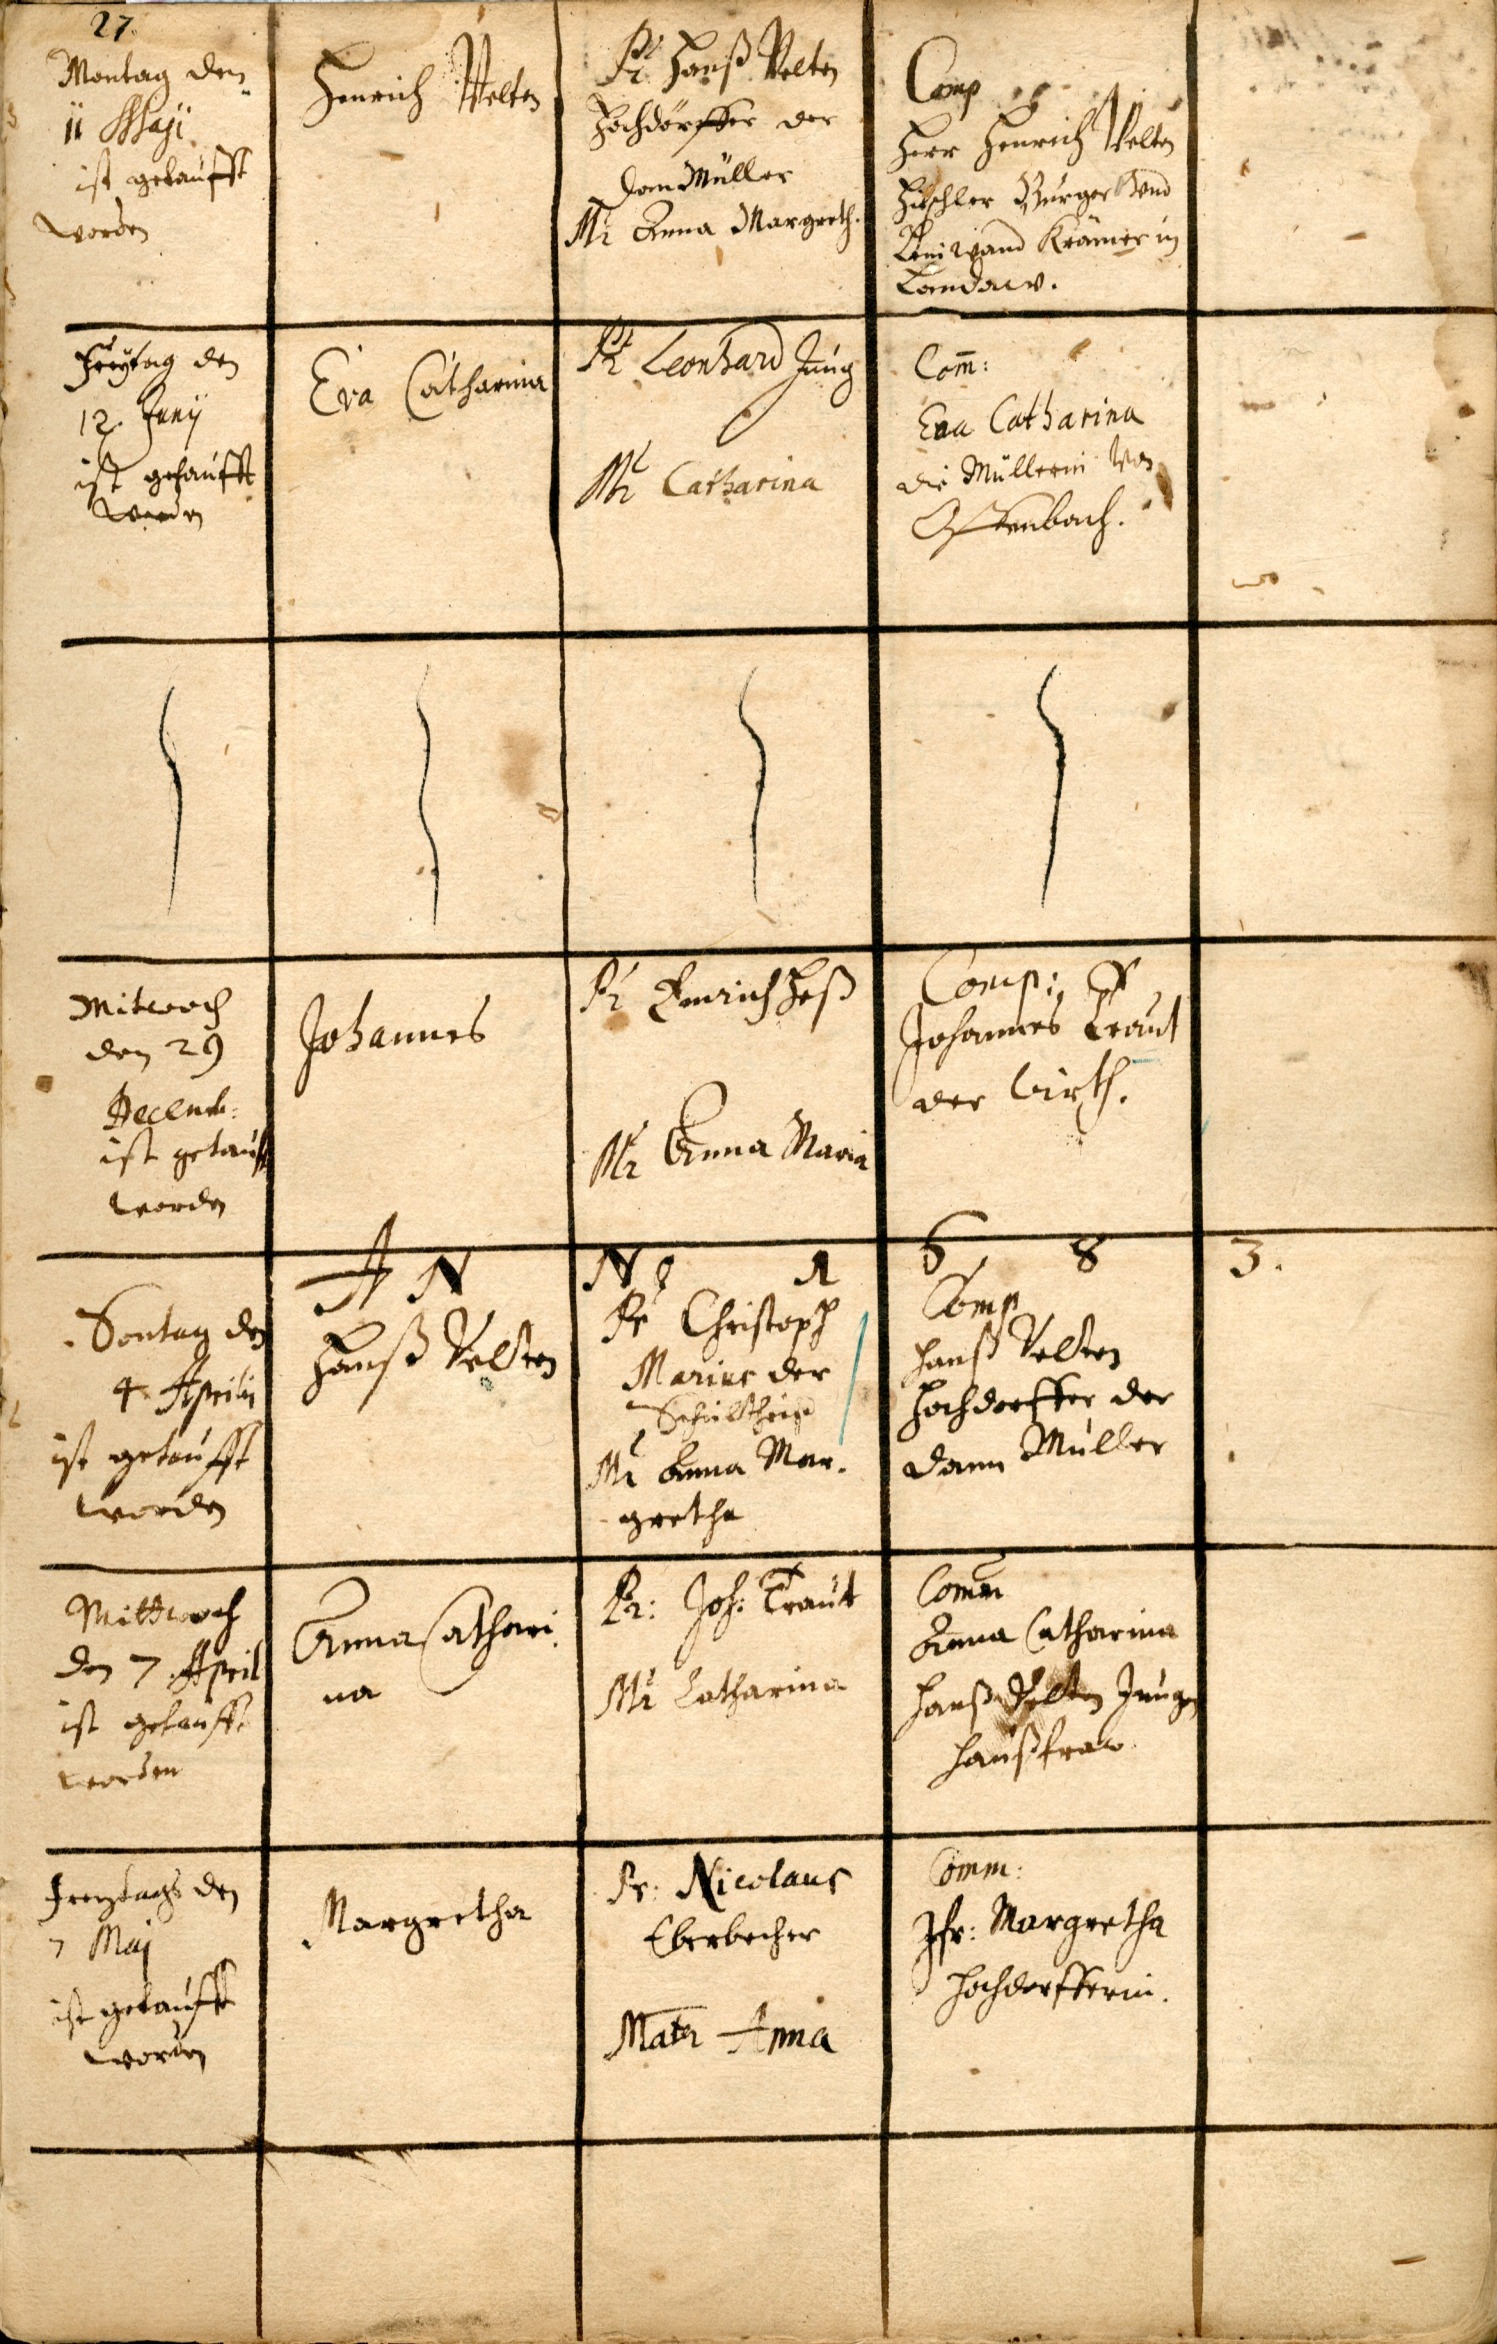 27.
Montag den
11 Maji
ist getaufft
worden
Henrich Velten
Pr Hanß Velten
Hochdörffer der
dam Müller
Mr Anna Margreth.
Comp
Herr Henrich Velten
Burger Vnd
Leinwand Krämer in
Landaw.
Freytag den
12. Junij
ist getaufft
worden
Eva Catharina
Pr Leonhard Jung
Mr Catharina
Com̄:
Eva Catharina
die Müllerin von
Offenbach.
Mitwoch
den 29
Decemb:
ist getaufft
worden
Johannes
Pr Henrich Heß
Mr Anna Maria
Comp:
Johannes Traut
der Wirth.
A N N o 1 6 8 3.
Sontag den
4. Aprilis
ist getaufft
worden
Hanß Velten
Pr Christoph
Marius der
Schultheiß
Mr Anna Mar-
gretha
Comp
Hanß Velten
Hochdorffer der
damm Müller
Mittwoch
den 7. April
ist getaufft
worden
Anna Cathari
na
Pr: Joh: Traut
Mr Catharina
Comm
Anna Catharina
Hanß Velten Jungen
Haußfraw
Freytags den
7 Maj
ist getaufft
worden
Margretha
Pr: Nicolaus
Eberbecher
Mater Anna
Comm:
Jfr: Margretha
Hochdorfferin.